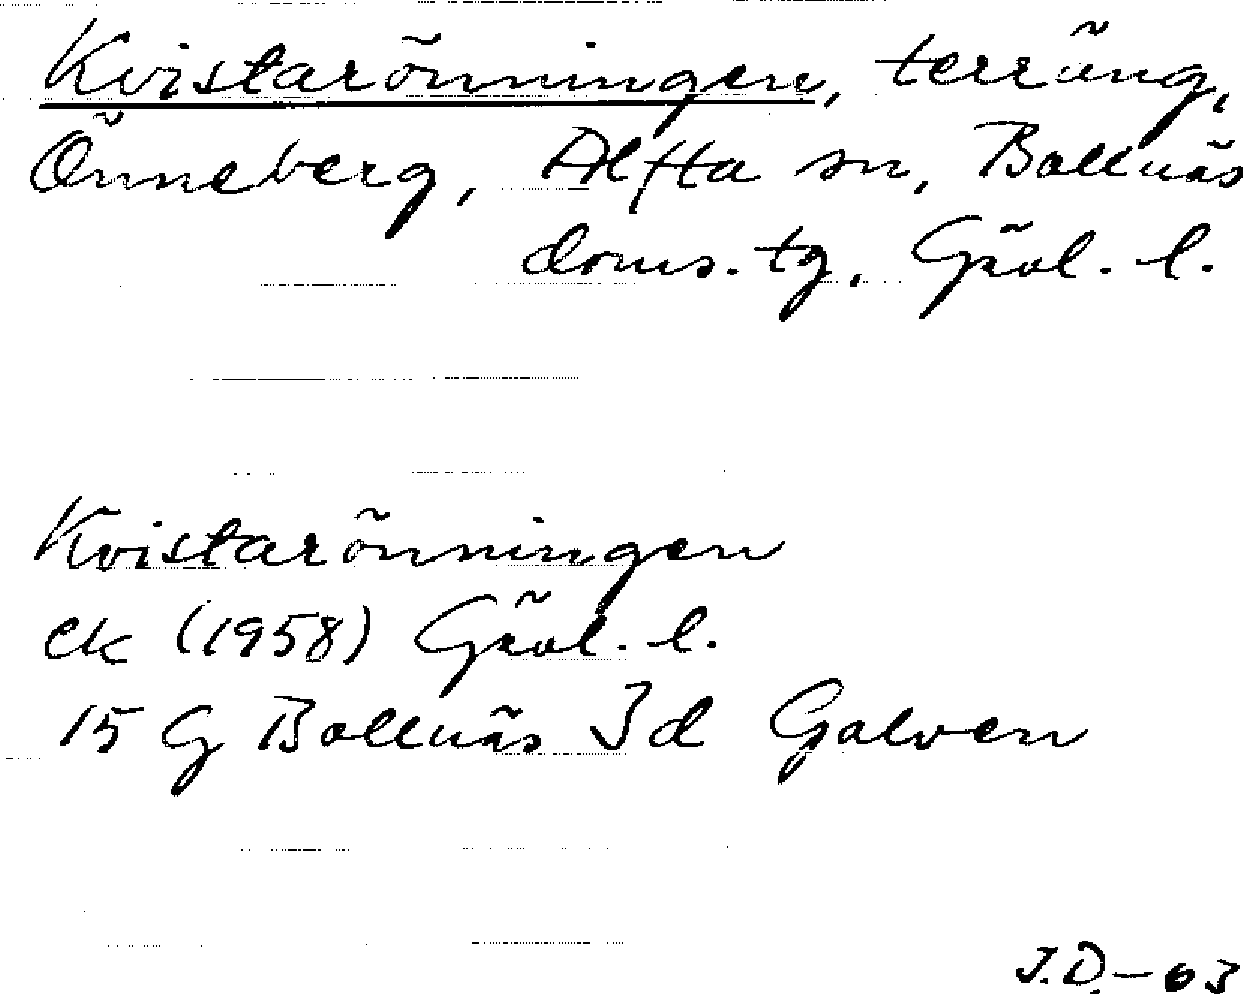 Kvistarönningen, terräng,
Önneberg, Alfta sn, Bollnäs
doms. tg, Gävl. l.
Kvistarönningen
ek (1958) Gävl. l.
15 G Bollnäs 3d Galven
J.D.-63